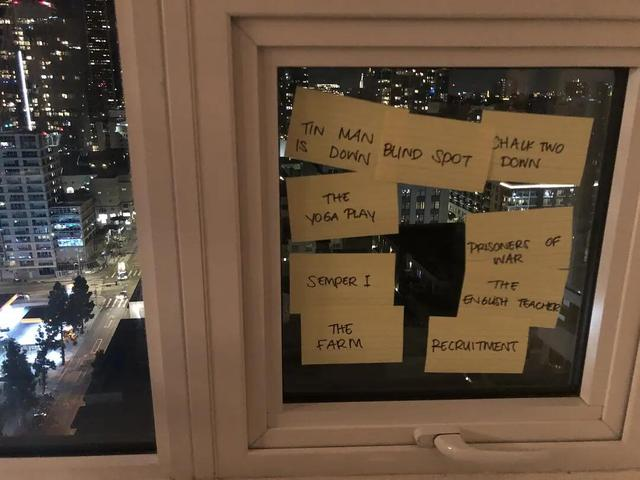 TIN MAN
IS DOWN
BLIND SPOT
CHALK TWO
DOWN
THE
YOGA PLAY
PRISONERS OF
WAR
SEMPER I
THE
ENGLISH TEACHER
THE
FARM
RECRUITMENT